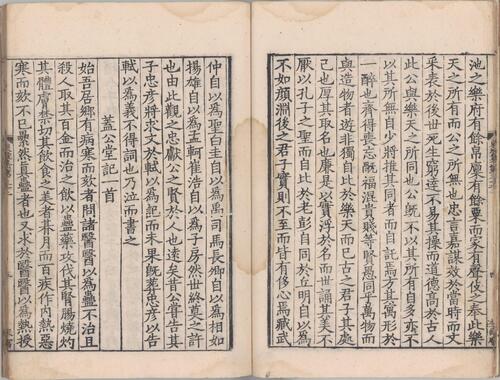 池之樂府有餘帛廩有餘粟而家有聲伎之奉此樂
天之所有而公之所無也忠言嘉謀效於當時而文
采表於後世死生窮達不易其操而道德高於古人
此公與樂天之所同也公既不以其所有自多亦不
以其所無自少將推其同者而自託焉方其寓形於
一醉也齊得喪忘禍福混貴賤等賢愚同乎萬物而
與造物者遊非獨自比於樂天而已古之君子其處
己也厚其取名也廉是以實浮於名而世誦其美不
厭以孔子之聖而自比於老彭自同於丘明自以為
不如顏淵後之君子實則不至而皆有侈心焉臧武
仲自以為聖白圭自以為禹司馬長卿自以為相如
揚雄自以為孟軻崔浩自以為子房然世終莫之許
也由此觀之忠獻公之賢於人也遠矣昔公嘗告其
子忠彥將求文於軾以為記而未果既葬忠彥以告
軾以為義不得詞也乃泣而書之
蓋公堂記一首
始吾居鄉有病寒而欬者問諸醫醫以為蠱不治且
殺人取其百金而治之飲以蠱藥攻伐其腎腸燒灼
其體膚禁切其飲食之美者朞月而百疾作內熱惡
寒而欬不已纍然真蠱者也又求於醫醫以為熱授